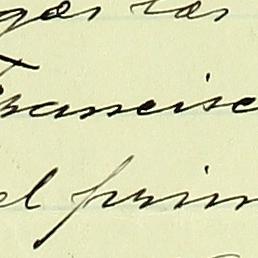 gas ras
Francisc
el prim